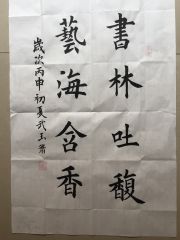 書林吐馥
藝海含香
歲次丙申初夏武玉